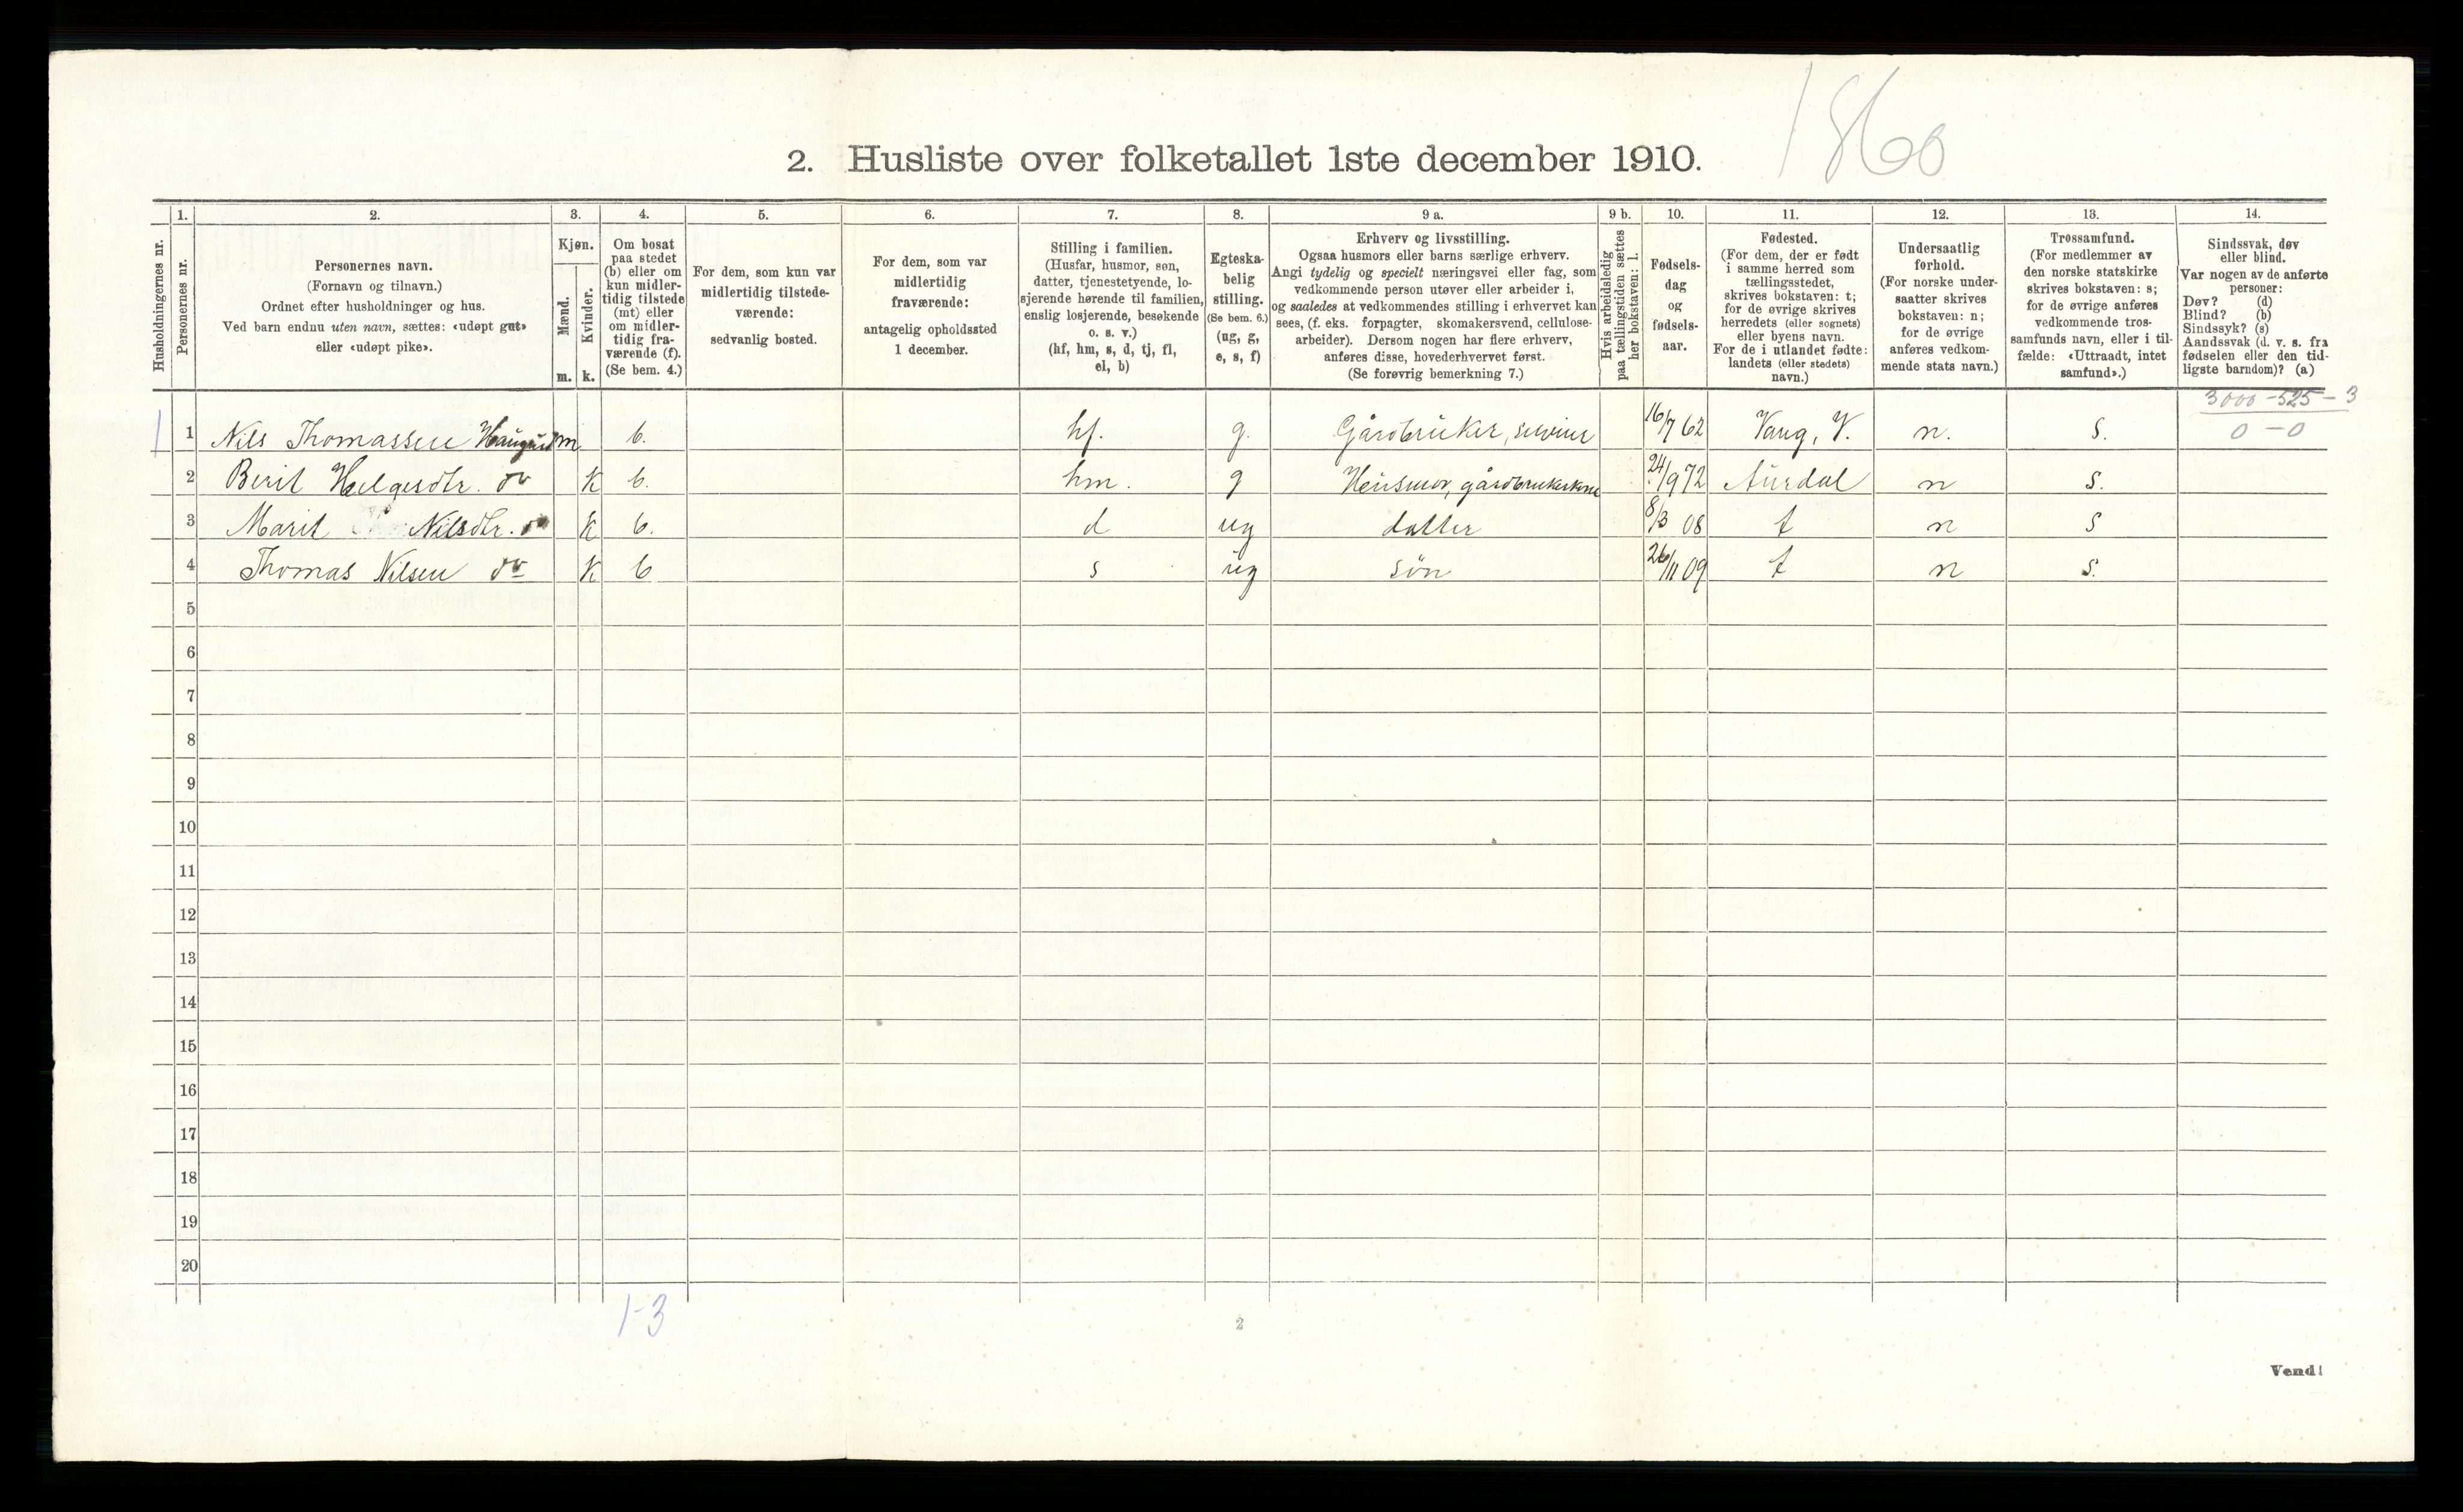 1860
2. Husliste over folketallet 1ste december 1910.
Husholdningernes nr.
1.
Personernes nr.
2.
Personernes navn.
(Fornavn og tilnavn.)
Ordnet efter husholdninger og hus.
Ved barn endnu uten navn, sættes: «udøpt gut»
eller «udøpt pike».
3.
Kjøn.
Mænd.
m.
Kvinder.
k.
4.
Om bosat
paa stedet
(b) eller om
kun midler-
tidig tilstede
(mt) eller
om midler-
tidig fra-
værende (f).
(Se bem. 4.)
5.
For dem, som kun var
midlertidig tilstede-
værende:
sedvanlig bosted.
6.
For dem, som var
midlertidig
fraværende:
antagelig opholdssted
1 december.
7.
Stilling i familien.
(Husfar, husmor, søn,
datter, tjenestetyende, lo-
sjerende hørende til familien,
enslig losjerende, besøkende
o. s. v.)
(hf, hm, s, d, tj, fl,
el, b)
8.
Egteska-
belig
stilling.
(Se bem. 6.)
(ug, g,
e, s, f)
9 a.
Erhverv og livsstilling.
Ogsaa husmors eller barns særlige erhverv.
Angi tydelig og specielt næringsvei eller fag, som
vedkommende person utøver eller arbeider i,
og saaledes at vedkommendes stilling i erhvervet kan
sees, (f. eks. forpagter, skomakersvend, cellulose-
arbeider). Dersom nogen har flere erhverv,
anføres disse, hovederhvervet først.
(Se forøvrig bemerkning 7.)
9 b.
Hvis arbeidsledig
paa tællingstiden sættes
her bokstaven: l.
10.
Fødsels-
dag
og
fødsels-
aar.
11.
Fødested.
(For dem, der er født
i samme herred som
tællingsstedet,
skrives bokstaven: t;
for de øvrige skrives
herredets (eller sognets)
eller byens navn.
For de i utlandet fødte:
landets (eller stedets)
navn.)
12.
Undersaatlig
forhold.
(For norske under-
saatter skrives
bokstaven: n;
for de øvrige
anføres vedkom-
mende stats navn.)
13.
Trossamfund.
(For medlemmer av
den norske statskirke
skrives bokstaven: s;
for de øvrige anføres
vedkommende tros-
samfunds navn, eller i til-
fælde: «Uttraadt, intet
samfund».)
14.
Sindssvak, døv
eller blind.
Var nogen av de anførte
personer:
Døv? (d)
Blind? (b)
Sindssyk? (s)
Aandssvak (d. v. s. fra
fødselen eller den tid-
ligste barndom)? (a)
3000-525-3
1 1 Nils Thomassen Haugrud m b. hf. g. Gårdbruker, selveier 16/7 62 Vang, V. n. s. 0-0
2 Berit Helgesdtr. do k b. hm. g Husmor, gårdbrukerkone 24/9 72 Aurdal n s.
3 Marit Nilsdtr. do k b. d ug datter 8/3 08 t n s
4 Thomas Nilsen do k b s ug søn 26/11 09 t n s.
5
6
7
8
9
10
11
12
13
14
15
16
17
18
19
20
1-3
2
Vend!